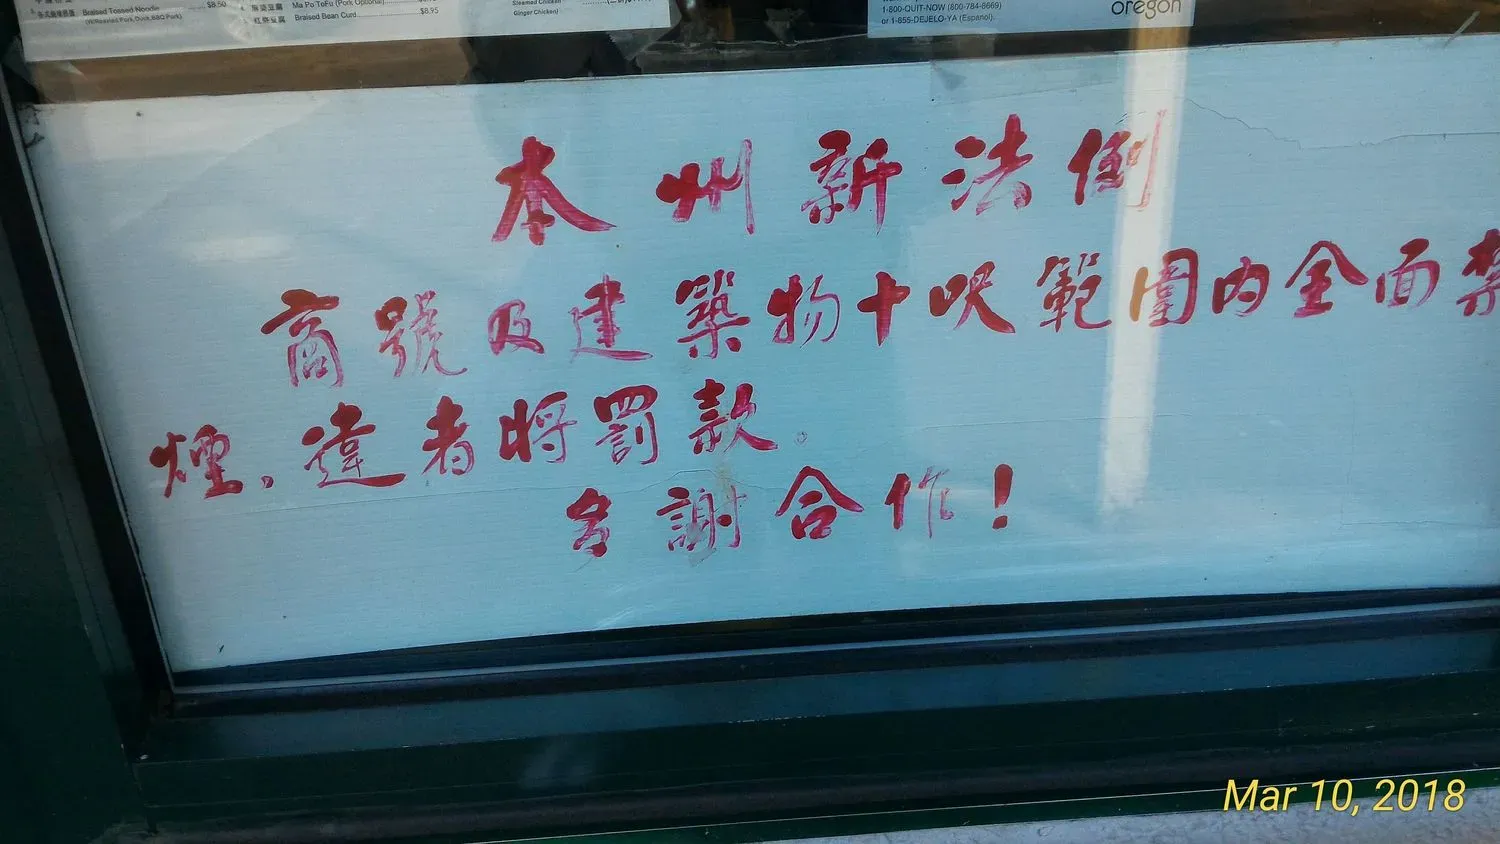 $8.50
Braised Tossed Noodle
(w/Roasted Pork,Duck,BBQ Pork)
Ma Po ToFu (Pork Optional)
紅燒豆腐 Braised Bean Curd $8.95
Steamed Chicken
Ginger Chicken)
1-800-QUIT-NOW (800-784-8669)
or 1-855-DEJELO-YA (Espanol).
oregon
本州新法例
商號及建築物十呎範圍内全面禁
煙，違者將罰款。
多謝合作！
Mar 10, 2018